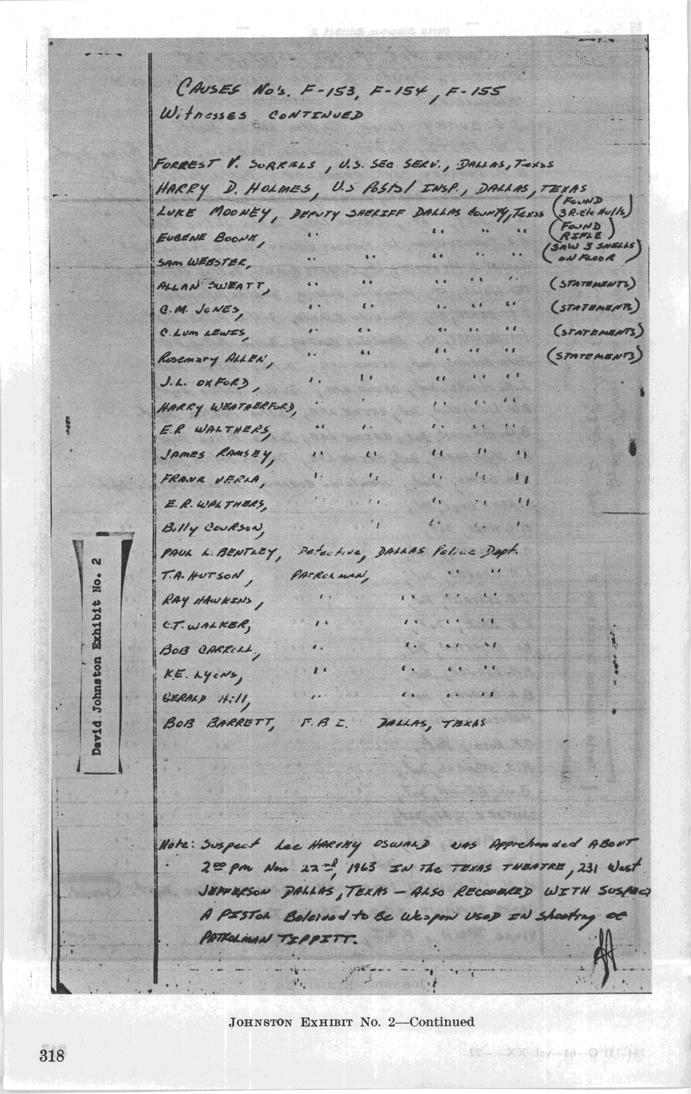 CAUSES No's. F-153, F-154, F-155
Witnesses CONTINUED
FORREST V. SORRIELS, U.S. SEC SERV., DALLAS, Texas
HARRY D. HOLMES, U.S Post/ INSP., DALLAS, TEXAS
LUKE MOONEY, DEPUTY SHERIFF DALLAS COUNTY, Texas (FOUND 3 Rifle Hulls)
EUGENE BOONE, " " " " (FOUND RIFLE)
SAM WEBSTER, " " " " " (SAW 3 SHELLS ON FLOOR)
ALLAN SWEATT, " " " " " (STATEMENTS)
C.M. JONES, " " " " " (STATEMENTS)
C. Lum LEWIS, " " " " " (STATEMENTS)
Rosemary ALLEN, " " " " " (STATEMENTS)
J.L. OXFORD, " " " " "
HARRY WEATHERFORD, " " " " "
E.R WALTHERS, " " " " "
JAMES RAMSEY, " " " " "
FRANK VERLA, " " " " "
E.R. WALTHERS, " " " "
Billy COURSON, " " " "
PAUL L. BENTLEY, Detective, DALLAS Police Dept.
T.A. HUTSON, PATROLMAN, " " "
RAY HAWKINS, " " " "
C.T. WALKER, " " " "
BOB CARROLL, " " " "
K.E. LYONS, " " " "
GERALD Hill, " " " "
BOB BARRETT, F.B.I. DALLAS, TEXAS
Note: Suspect Lee HARVEY OSWALD WAS Apprehended ABOUT
2:00 pm Nov. 22nd, 1963 IN the TEXAS THEATRE, 231 West
JEFFERSON DALLAS, TEXAS — ALSO RECOVERED WITH SUSPECT
A PISTOL Beleived to Be Weapon USED IN Shooting of
PATROLMAN TIPPITT.
David Johnston Exhibit No. 2
JOHNSTON EXHIBIT No. 2—Continued
318